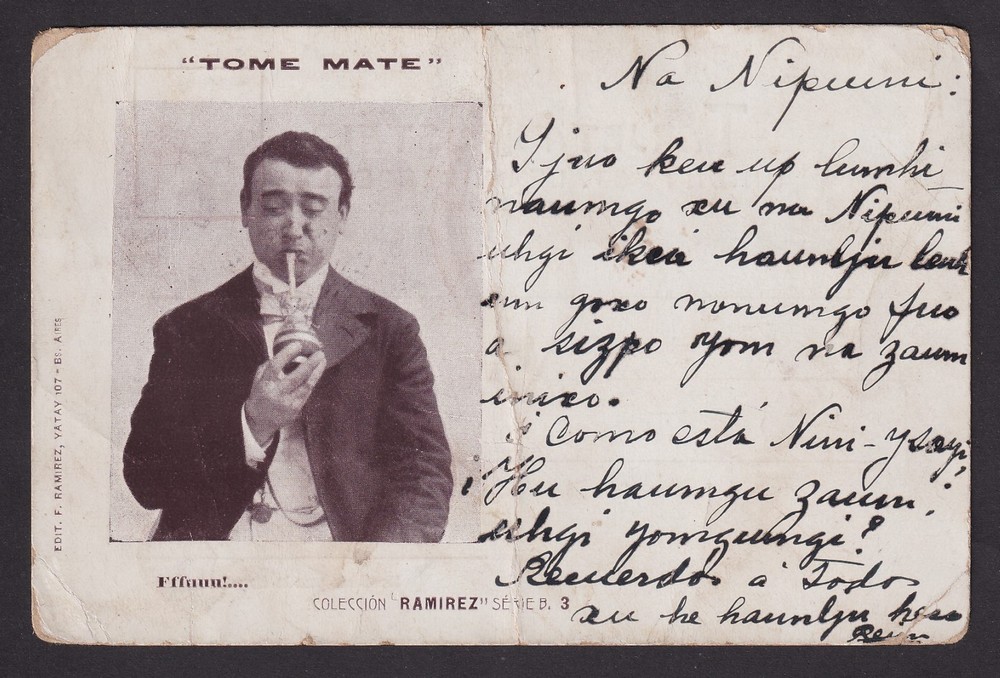 "TOME MATE"
EDIT. F. RAMIREZ, YATAY 107 - BS. AIRES
Effnuu!....
COLECCIÓN "RAMIREZ" SÉRIE B. 3
Na Nipumi:
Yjuo keu up lumhi
naumgo xu na Nipumi
uhgi ikea haumlju
goxo nonumgo juo
a sizpo yom na zaum
inixo.
¿Como está Nini-y
¿Hu haumgu zaum,
uhgi yomgumgi?
Recuerdos á Todos
xu he haumlju